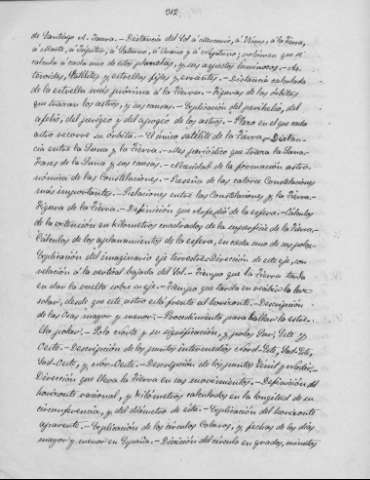 312
de Santiago A. Saura. - Distancia del Sol á Mercurio, á Vénus, á la Tierra,
á Marte, á Júpiter, á Saturno, á Urano y á Neptuno; volúmen que se
calcula á cada uno de estos planetas, y sus aspectos luminosos. - As-
teroides, Satélites y estrellas fijas y errantes. - Distancia calculada
de la estrella más próxima á la Tierra. - Figuras de las órbitas
que trazan los astros, y sus causas. - Explicación del perihelio, del
afelio, del perigeo y del apogeo de los astros. - Plazo en el que cada
astro recorre su órbita. - El único satélite de la Tierra. - Distan-
cia entre la Luna y la Tierra. - periódico que trazara la Luna. -
Fases de la Luna y sus causas. - de la formación astro-
nómica de las Constelaciones. - Reseña de las catorce Constelaciones
más importantes. - Relaciones entre las Constelaciones y la Tierra. -
Figura de la Tierra. - Definición que de la esfera. - Cálculos
de la extención en kilómetros cuadrados de la superficie de la Tierra. -
Cálculos de los aplanamientos de la esfera, en cada uno de sus polos. -
Explicación del imaginario eje terrestre. Dirección de este eje, con
relación á la vertical bajada del Sol. - Tiempo que la Tierra tarda
en dar la vuelta sobre su eje. - Tiempo que tarda en recibir la luz
solar, desde que este astro está frente al horizonte. - Descripción
de las Osas mayor y menor. - Procedimiento para hallar la estre-
lla polar. - Polo Norte y su significación, y polos Sur, Este y
Oeste. - Descripción de los puntos intermedios Nord-Este, Sud-Este,
Sud-Oeste, y Nor-Oeste. - Descripción de los puntos Zenit y Nadir. -
Dirección que lleva la Tierra en sus movimientos. - Definición del
horizonte racional, y kilómetros calculados en la longitud de su
circunferencia, y del diámetro de ésta. - Explicación del horizonte
aparente. - Explicación de los círculos Coluros, y fechas de los días
mayor y menor en España. - División del círculo en grados, minutos